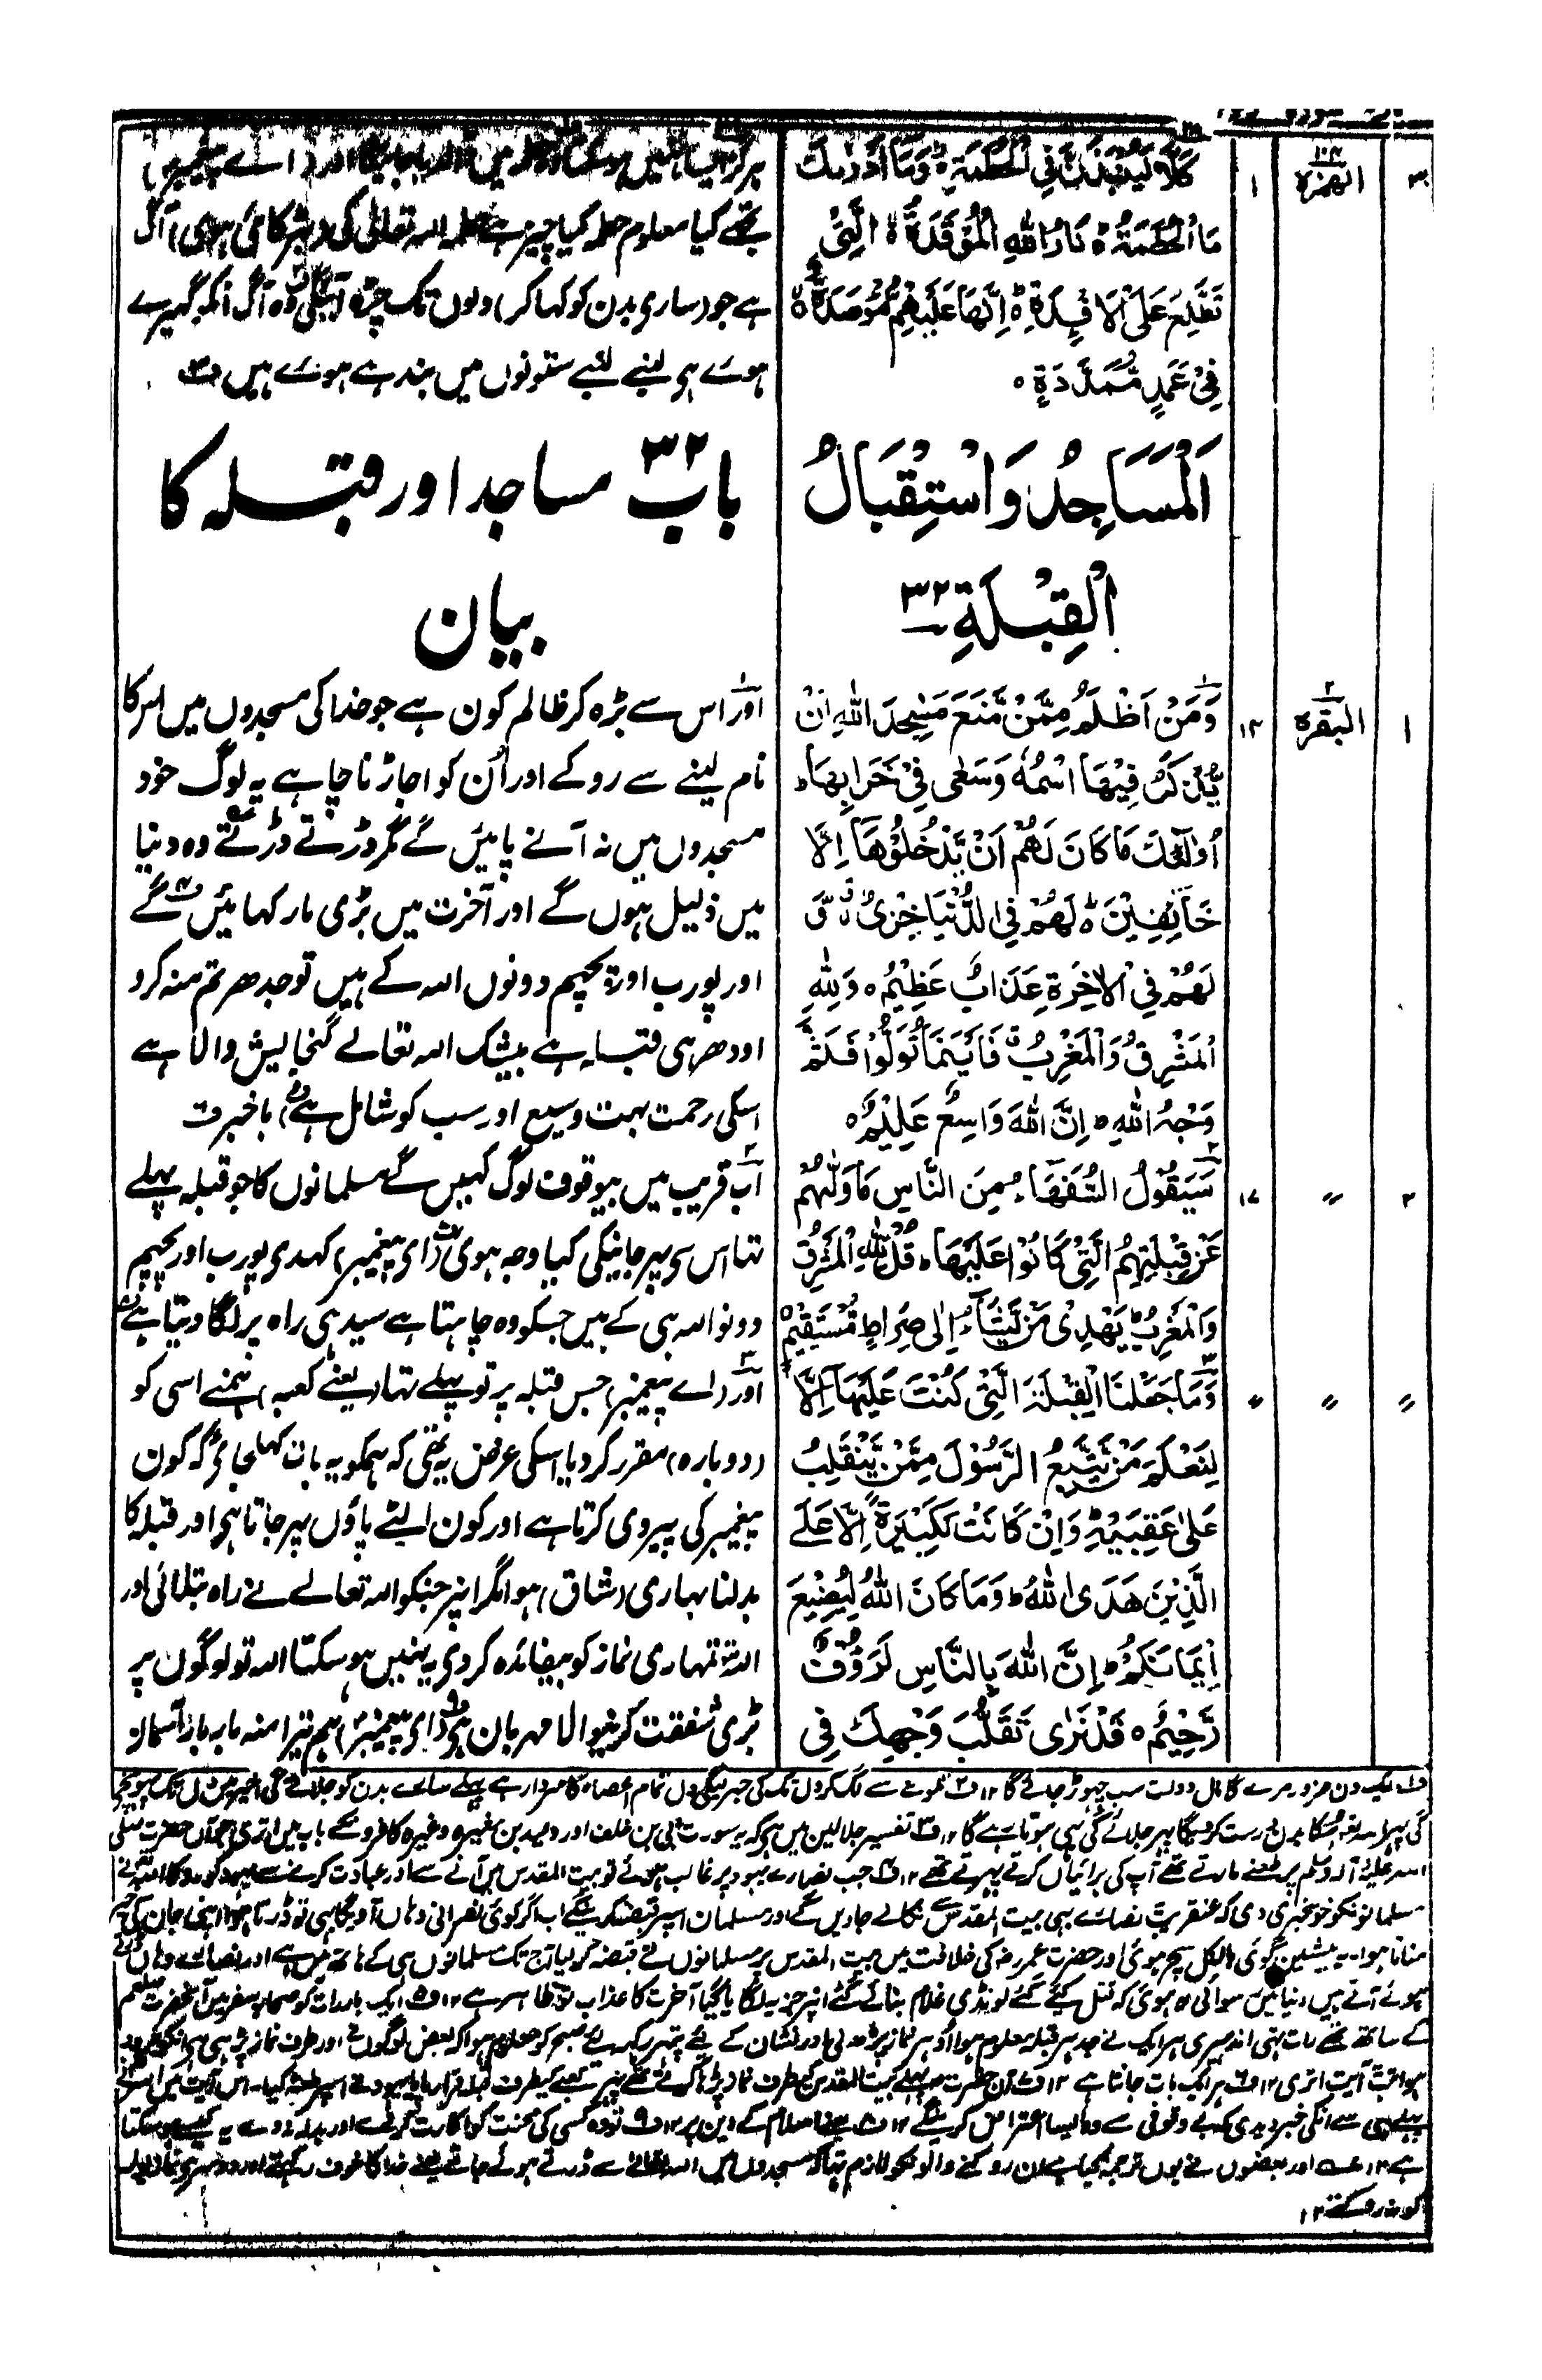 ۳۰ الهمزة ۱۰۴ ۱
كَلَّا لَيُنْبَذَنَّ فِي الْحُطَمَةِ وَمَا أَدْرٰىكَ
مَا الْحُطَمَةُ ۵ نَارُ اللّٰهِ الْمُوْقَدَةُ ۵ الَّتِيْ
تَطَّلِعُ عَلَى الْاَفْـِٕدَةِ ۵ اِنَّهَا عَلَيْهِمْ مُّؤْصَدَةٌ ۵
فِيْ عَمَدٍ مُّمَدَّدَةٍ ۵
ہرگز ایسا نہیں
تجھے کیا معلوم حطمہ کیا چیز ہے اللہ تعالیٰ کی آگ
ہے جو (ساری بدن کو کہا کر) دلوں تک چڑہ وہ آگ انکو گہیرے
ہوے ہی لنبے لنبے ستونوں میں بندہے ہوے ہیں
اَلْمَسَاجِدُ وَاسْتِقْبَالُ
الْقِبْلَةِ ۳۲
باب ۳۲ مساجد اور قبلہ کا
بیان
۱ البقرة ۲ ۱۴
وَمَنْ اَظْلَمُ مِمَّنْ مَّنَعَ مَسٰجِدَ اللّٰهِ اَنْ
يُّذْكَرَ فِيْهَا اسْمُهٗ وَسَعٰى فِيْ خَرَابِهَا ط
اُولٰٓئِكَ مَا كَانَ لَهُمْ اَنْ يَّدْخُلُوْهَآ اِلَّا
خَآئِفِيْنَ ۵ لَهُمْ فِي الدُّنْيَا خِزْيٌ وَّ
لَهُمْ فِي الْاٰخِرَةِ عَذَابٌ عَظِيْمٌ ۵ وَلِلّٰهِ
الْمَشْرِقُ وَالْمَغْرِبُ فَاَيْنَمَا تُوَلُّوْا فَثَمَّ
وَجْهُ اللّٰهِ ط اِنَّ اللّٰهَ وَاسِعٌ عَلِيْمٌ ۵
۲ 〃 ۱۷
سَيَقُوْلُ السُّفَهَآءُ مِنَ النَّاسِ مَا وَلّٰىهُمْ
عَنْ قِبْلَتِهِمُ الَّتِيْ كَانُوْا عَلَيْهَا ط قُلْ لِّلّٰهِ الْمَشْرِقُ
وَالْمَغْرِبُ ط يَهْدِيْ مَنْ يَّشَآءُ اِلٰى صِرَاطٍ مُّسْتَقِيْمٍ ۵
〃 〃 〃
وَمَا جَعَلْنَا الْقِبْلَةَ الَّتِيْ كُنْتَ عَلَيْهَآ اِلَّا
لِنَعْلَمَ مَنْ يَّتَّبِعُ الرَّسُوْلَ مِمَّنْ يَّنْقَلِبُ
عَلٰى عَقِبَيْهِ ط وَاِنْ كَانَتْ لَكَبِيْرَةً اِلَّا عَلَے
الَّذِيْنَ هَدَى اللّٰهُ ط وَمَا كَانَ اللّٰهُ لِيُضِيْعَ
اِيْمَانَكُمْ ط اِنَّ اللّٰهَ بِالنَّاسِ لَرَءُوْفٌ
رَّحِيْمٌ ۵ قَدْ نَرٰى تَقَلُّبَ وَجْهِكَ فِي
اور اس سے بڑہ کر ظالم کون ہے جو خدا کی مسجدوں میں اسکا
نام لینے سے روکے اور اُن کو اجاڑنا چاہے یہ لوگ خود
مسجدوں میں نہ آنے پائیں گے مگر ڈرتے ڈرتے وہ دنیا
میں ذلیل ہوں گے اور آخرت میں بڑی مار کہائیں گے
اور پورب اور پچھم دونوں اللہ کے ہیں تو جدھر تم منہ کرو
اودھر ہی قبلہ ہے بیشک اللہ تعالے گنجایش والا ہے
اسکی رحمت بہت وسیع اور سب کو شامل ہے) باخبر
اب قریب میں بیوقوف لوگ کہیں گے مسلمانوں کا جو قبلہ پہلے
تہا اس سی پہر جانیکی کیا وجہ ہوئی (ای پیغمبر) کہدی پورب اور پچھم
دونو اللہ ہی کے ہیں جسکو وہ چاہتا ہے سیدہی راہ پر لگا دیتا ہے
اور (اے پیغمبر) جس قبلہ پر تو پہلے تہا (یعنے کعبہ) ہمنے اسی کو
(دوبارہ) مقرر کر دیا اسکی غرض یہ تہی کہ ہمکو یہ بات کہلجائے کہ کون
پیغمبر کی پیروی کرتا ہے اور کون الٹے پاؤں پہر جاتا ہی اور قبلہ کا
بدلنا بہاری (شاق) ہوا مگر انپر جنکو اللہ تعالے نے راہ بتلائی اور
اللہ تمہاری نماز کو بیفائدہ کر دی یہ نہیں ہو سکتا اللہ تو لوگوں پر
بڑی شفقت کرنیوالا مہربان ہی (ای پیغمبر) ہم تیرا منہ بار بار آسمان
ایک دن ضرور مرے گا مال دولت سب چہوڑ جائے گا ۱۲ دل تمام اعضاء کا سردار ہے پہلے سارے بدن کو جلائے گی
تفسیر جلالین میں ہی کہ یہ سورت ابی بن خلف اور ولید بن مغیرہ وغیرہ کافروں کے باب میں اتری
علیہ وآلہ وسلم پر طعنے مارتے تھے آپ کی برائیاں کرتے پہرتے تھے ۱۲ جب نصارے یہود پر غالب ہوئے تو بیت المقدس میں آنے سے اور عبادت کرنے سے
مسلمانونکو خوشخبری دی کہ عنقریب نصارے بہی بیت المقدس سے نکالے جاویں گے اور مسلمان اسپر قبضہ کرینگے اب اگر کوئی نصرانی وہاں آویگا بہی تو ڈرتا ہوا اپنی جان کی خیر
مناتا ہوا۔ یہ پیشین گوئی بالکل سچ ہوئی اور حضرت عمر رضہ کی خلافت میں بیت المقدس پر مسلمانوں نے قبضہ کر لیا آج تک مسلمانوں ہی کے ہاتھ میں ہے اور نصارے وہاں
ہوئے آتے ہیں دنیا میں رسوائی یہ ہوئی کہ قتل کئے گئے لونڈی غلام بنائے گئے انپر جزیہ لگایا گیا آخرت کا عذاب تو ظاہر ہے ۱۲ ایک بار رات کو صحابہ سفر میں آنحضرت صلعم
کے ساتھ تھے رات تہی اندہیری ہر ایک نے جدہر قبلہ معلوم ہوا اودہر نماز پڑہ لی اور نشان کے لیے پتہر رکہدیے صبح کو معلوم ہوا کہ بعض لوگوں نے اور طرف نماز پڑہی
ہوا تب آیت اتری ۱۲ ہر ایک بات جانتا ہے ۱۲ آنحضرت صلعم پہلے بیت المقدس کیطرف نماز پڑہا کرتے تھے پہر کعبے کیطرف قبلہ قرار پایا یہود نے اسپر طعنہ کیا۔ اس آیت میں اللہ نے
پہلے ہی سے انکی خبر دیدی کہ بے وقوفی سے وہ ایسا اعتراض کرینگے ۱۲ یعنے اسلام کے دین پر ۱۲ تو وہ کسی کی محنت کو اکارت کرے اور بدلہ نہ دے یہ کیسے ہو سکتا
ہے ۱۲ اور بعضوں نے یوں ترجمہ کیا ہے ان روکنے والونکو لازم تہا کہ مسجدوں میں اللہ تعالے سے ڈرتے ہوئے جاتے یعنے خدا کا خوف رکہتے اور دوسری
کو نہ روکتے ۱۲